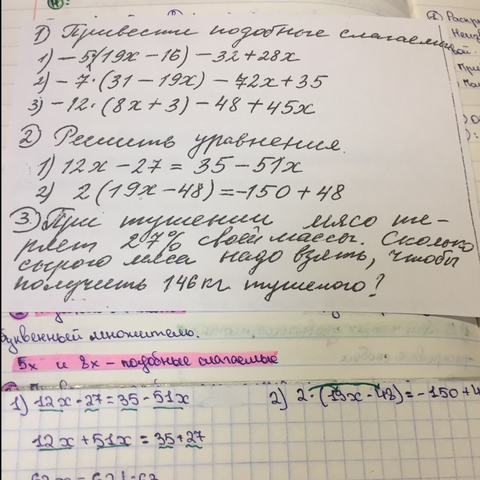 ① Привести подобные слагаемые
1) -5(19x - 16) - 32 + 28x
2) -7·(31 - 19x) - 72x + 35
3) -12·(8x + 3) - 48 + 45x
② Решить уравнения.
1) 12x - 27 = 35 - 51x
2) 2(19x - 48) = -150 + 48
③ При тушении мясо те-
ряет 27% своей массы. Сколько
сырого мяса надо взять, чтобы
получить 146 кг тушеного?
буквенный множитель.
5x и 8x - подобные слагаемые
1) 12x - 27 = 35 - 51x
2) 2·(19x - 48) = -150 + 4
12x + 51x = 35 + 27